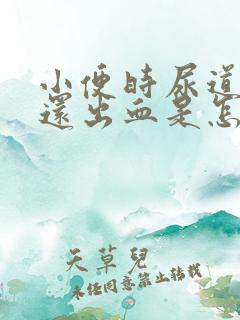 小便時尿道
還出血是怎
天草兒
未经同意禁止转载